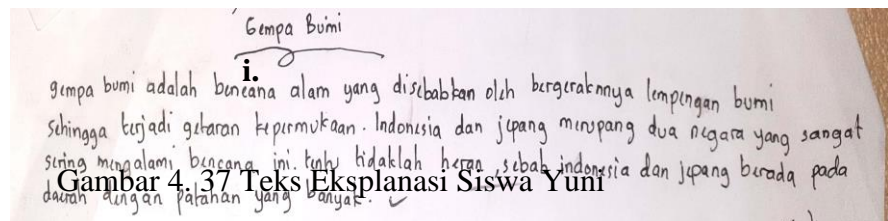 Gempa Bumi
i.
gempa bumi adalah bencana alam yang disebabkan oleh bergeraknnya lempengan bumi
Sehingga terjadi getaran kepermukaan. Indonesia dan jepang merupang dua negara yang sangat
sering mengalami bencana ini. tentu tidaklah heran, sebab indonesia dan jepang berada pada
Gambar 4. 37 Teks Eksplanasi Siswa Yuni
daerah dengan patahan yang banyak.